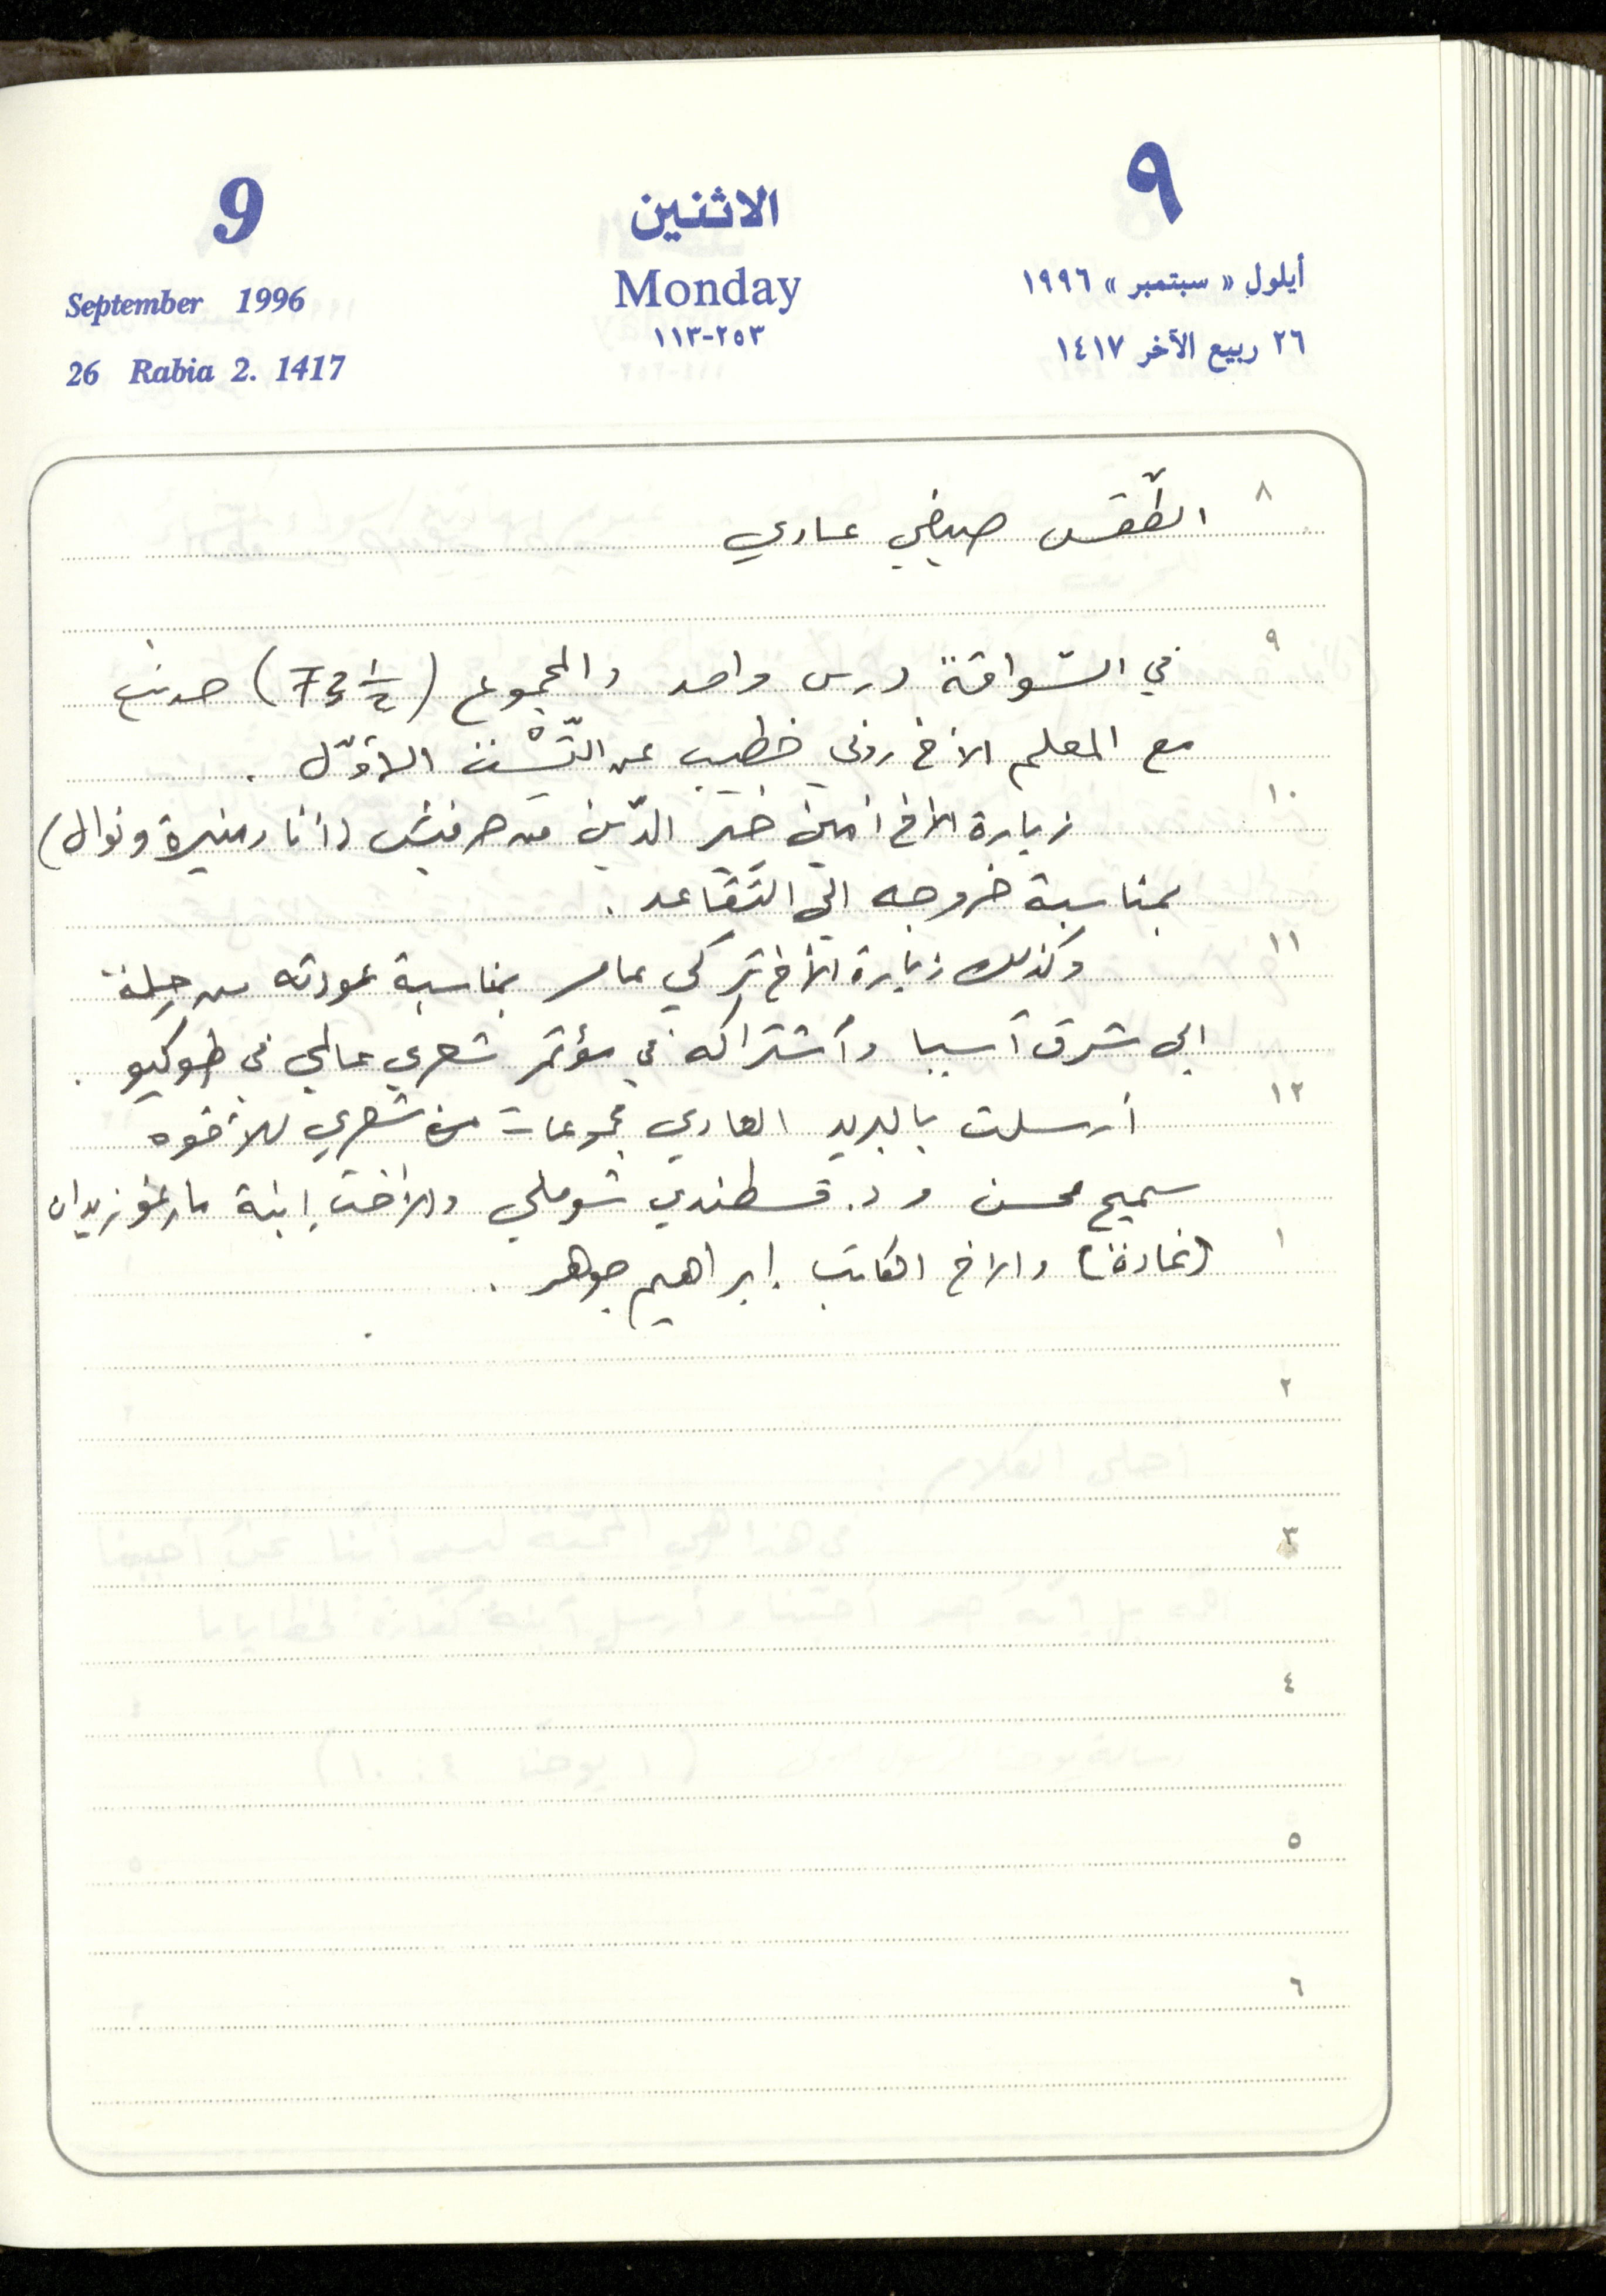 9
الاثنين
٩
September 1996
Monday
أيلول « سبتمبر » ١٩٩٦
26 Rabia 2. 1417
٢٥٣-١١٣
٢٦ ربيع الآخر ١٤١٧
٨ الطّقس صيفي عادي
٩ في السّواقة درس واحد والمجموع (73 1/2) حديث
مع المعلم الأخ روني خطيب عن التِّسْت الاوّل .
١٠ زيارة الأخ أمين خير الدّين من حرفيش (أنا ومنيرة ونوال)
بمناسبة خروجه الى التَّقاعد .
١١ وكذلك زيارة الأخ تركي عامر بمناسبة عودته من رحلة
الى شرق آسيا وأشتراكه في مؤتمر شعري عالمي في طوكيو .
١٢ أرسلت بالبريد العادي مجموعات من شعري للأخوه
سميح محسن و د. قسطندي شوملي والأخت إبنة مارغو زيدان
١ والاخ الكاتب إبراهيم جوهر .
٢
٣
٤
٥
٦